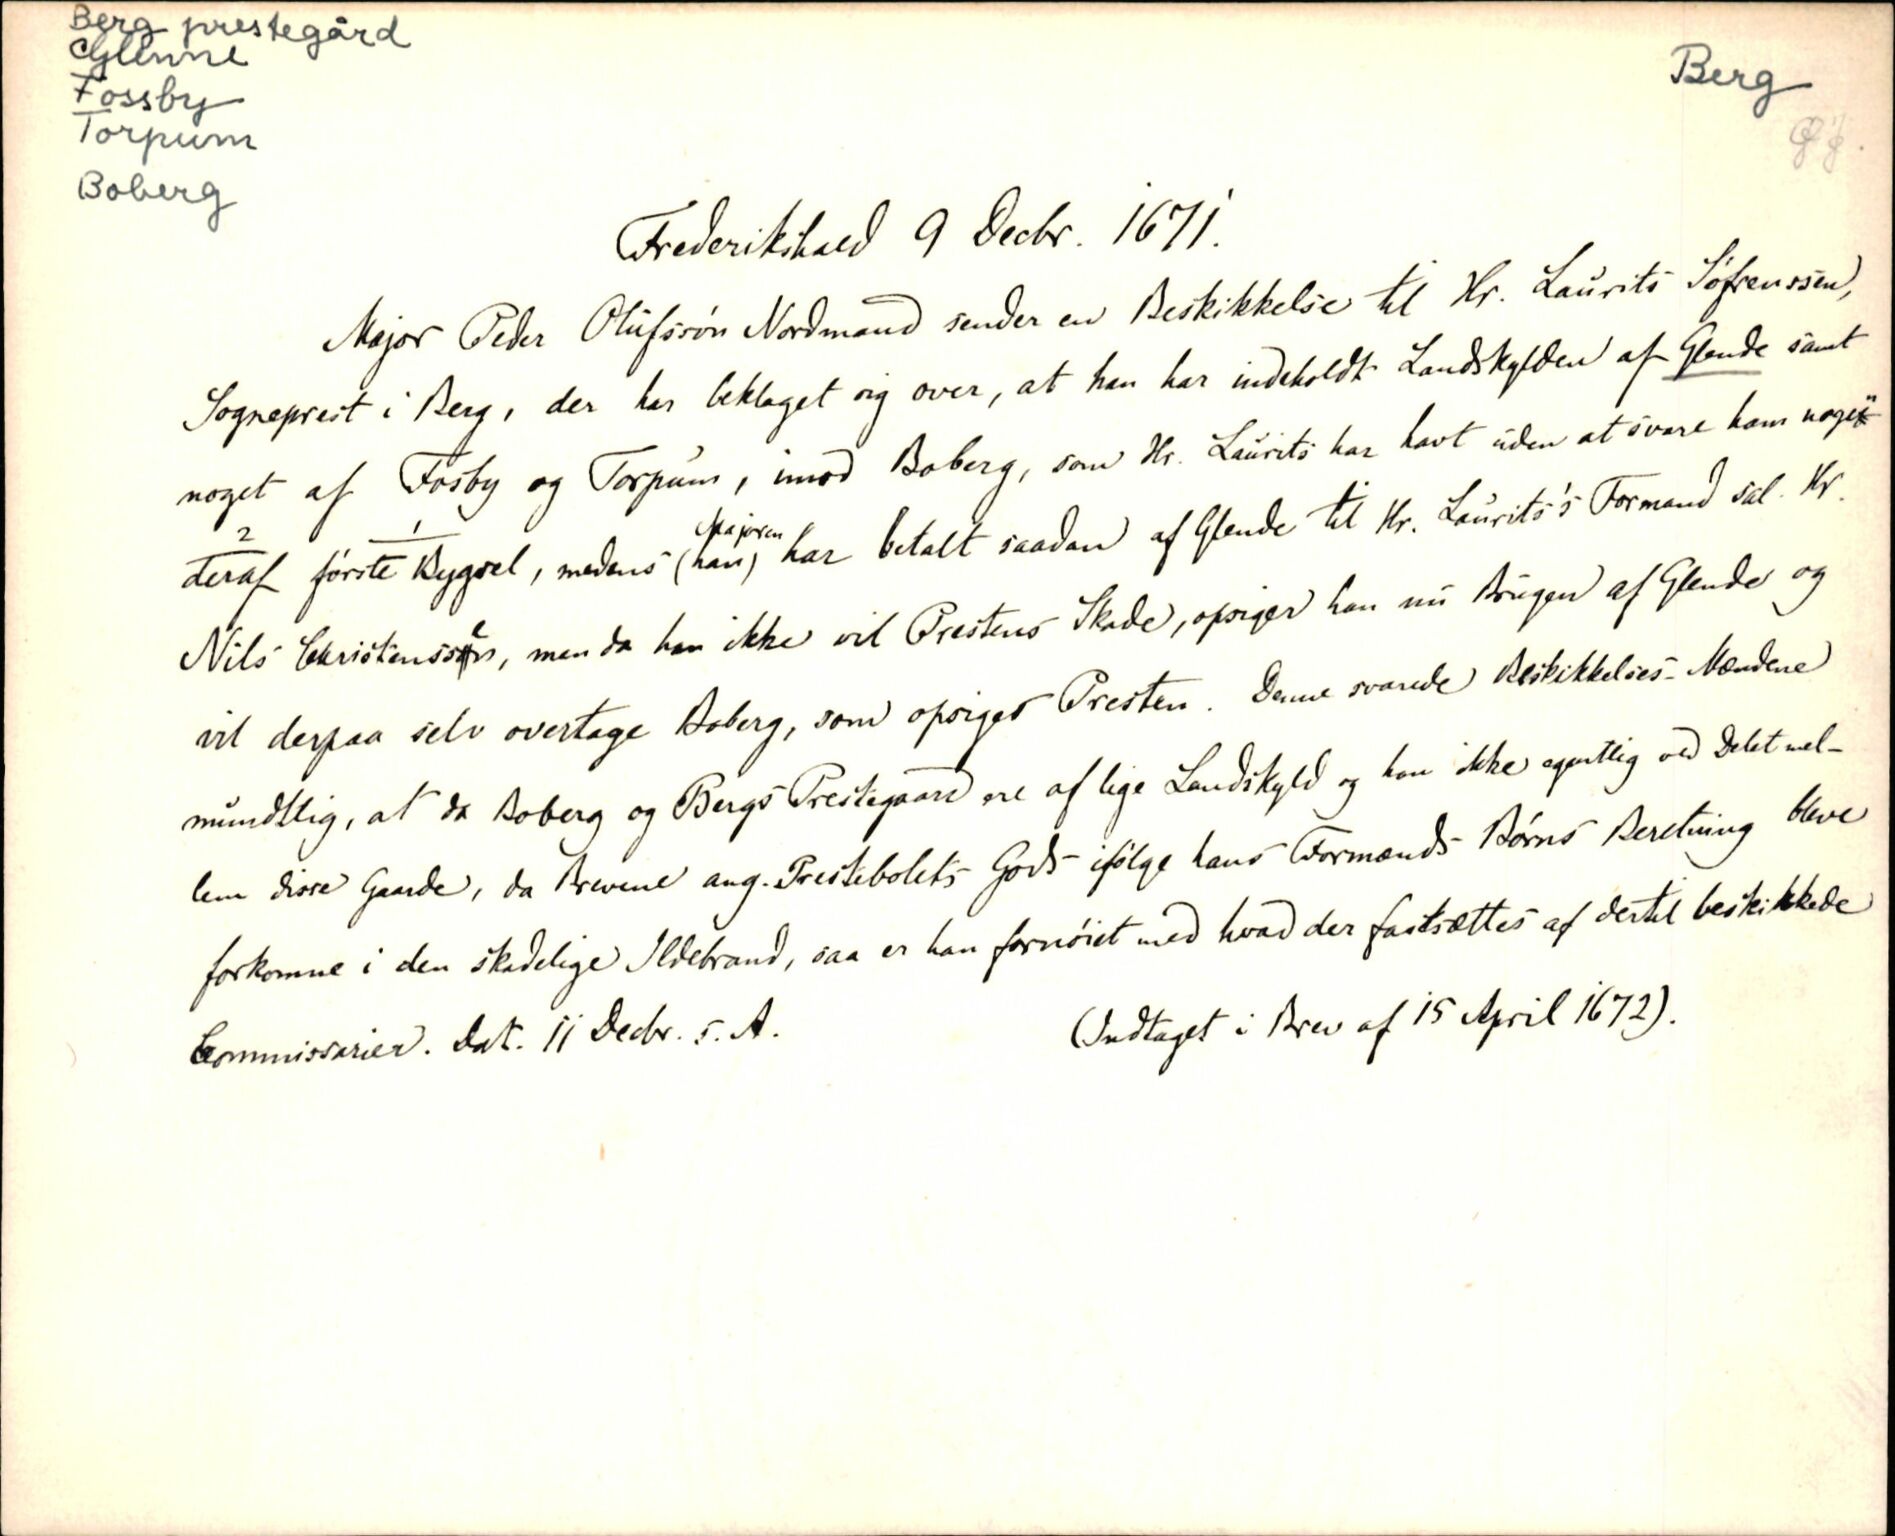 Berg prestegård
Glenne
Fossby
Torpum
Boberg
Berg
Frederikshald 9 Decbr. 1671.
Major Peder Olufssön Nordmand sender en Beskikkelse til Hr. Laurits Söfrenssen,
Sogneprest i Berg, der har beklaget sig over, at han har indeholdt Landskylden af Glende samt
noget af Fosby og Torpum, imod Boberg, som Hr. Laurits har havt uden at svare ham noget
2 1 Majoren
deraf förste Bygsel, medens (han) har betalt saadan af Glende til Hr. Laurits's Formand sal. Hr.
Nils Christenssen, men da han ikke vil Prestens Skade, opsiger han nu Brugen af Glende og
vil derpaa selv overtage Boberg, som opsiges Presten. Denne svarede Beskikkelses-Mændene
mundtlig, at da Boberg og Bergs Prestegaard ere af lige Landskyld og han ikke egentlig ved Delet mel-
lem disse Gaarde, da Brevene ang. Prestebolets Gods ifölge hans Formænds Börns Beretning bleve
forkomne i den skadelige Ildebrand, saa er han fornöiet med hvad der fastsættes af dertil beskikkede
Commissarier. Dat. 11 Decbr. s. A. (Indtaget i Brev af 15 April 1672).